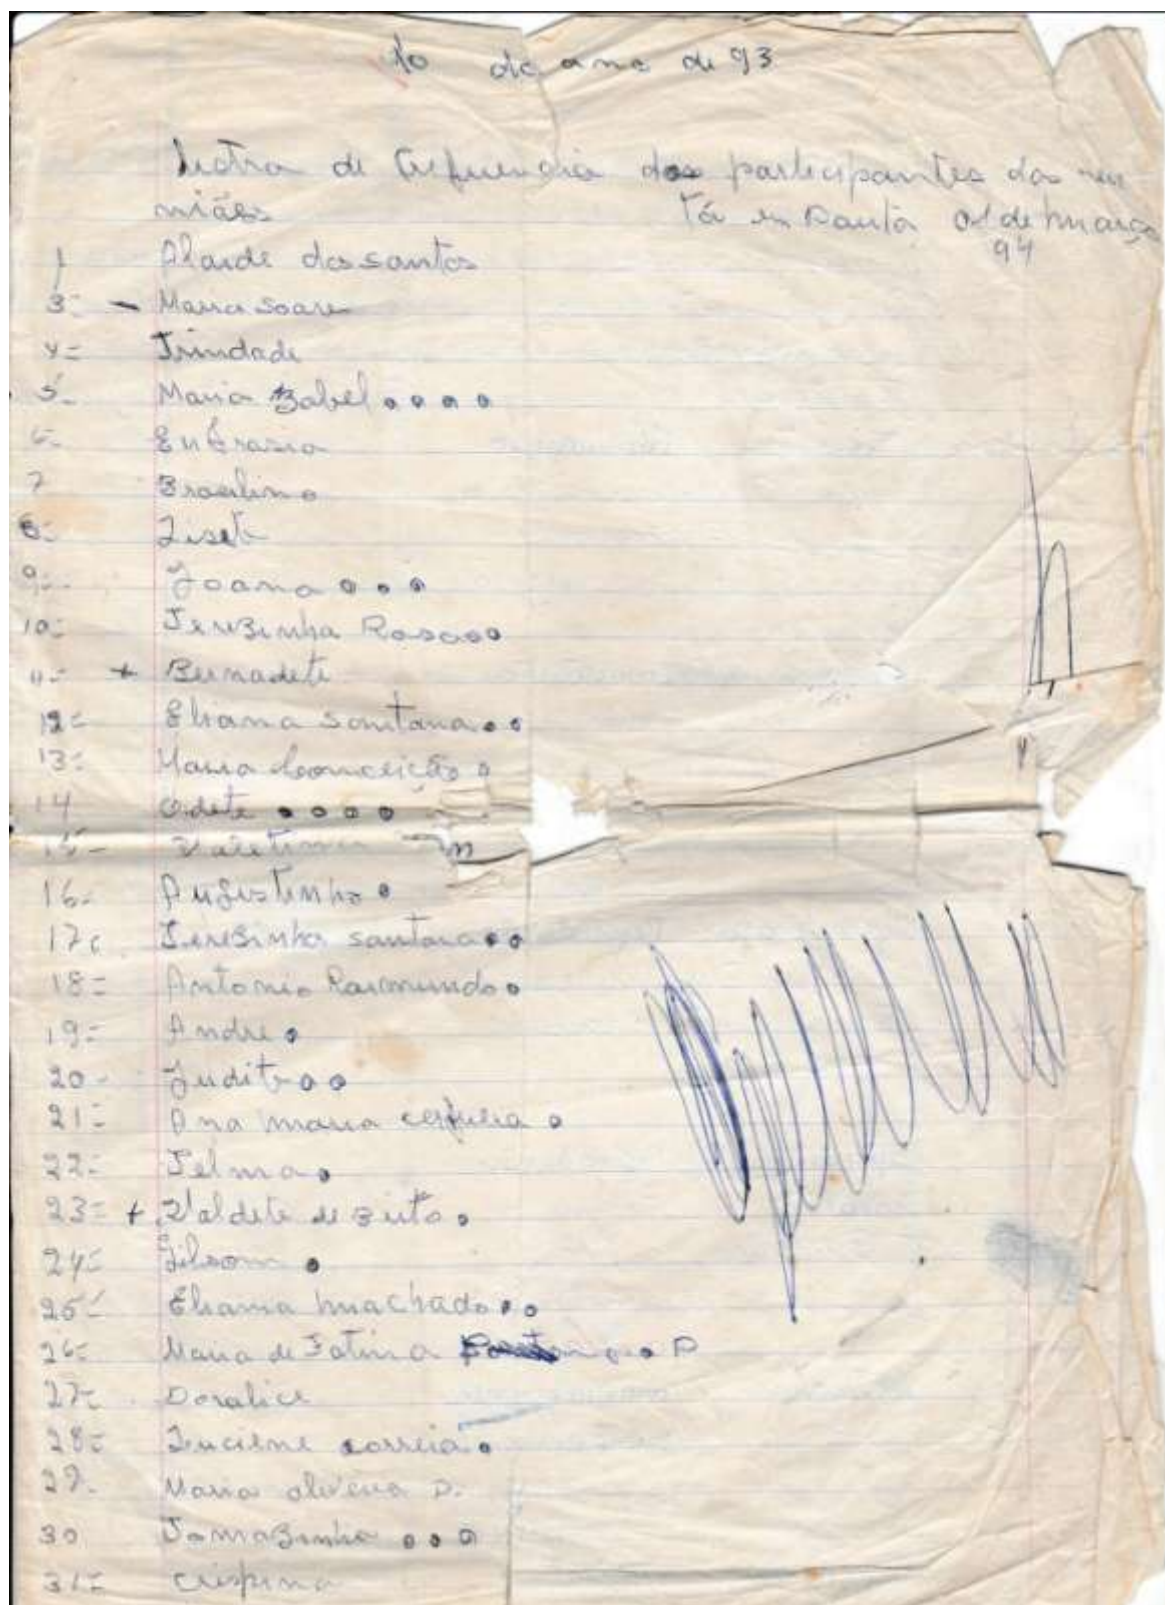 10 do ano de 93
Lista de frequencia dos participantes das reu
niães Tá em Pauta 01 de março
94
1 Alaide dos santos
3= - Maria Soare
4= Trindade
5- Maria Zabel
6-
7 Brasilino
8- Liset
9- Joana
10= Terezinha Rosa
11- + Bernadete
12= Eliana santana
13= Maria Conceição
14 Odete
15-
16- Augustinho
17= Terezinha santana
18= Antonio Raimundo
19= Andre
20- Judite
21= Ana maria
22= Telma
23= + Valdete de Brito
24= Gilsom
25= Eliana machado
26= Maria de Fatima
27- Doralice
28= Luciene correia
29- Maria oliveira D.
30 Tomazinha
31= crispina